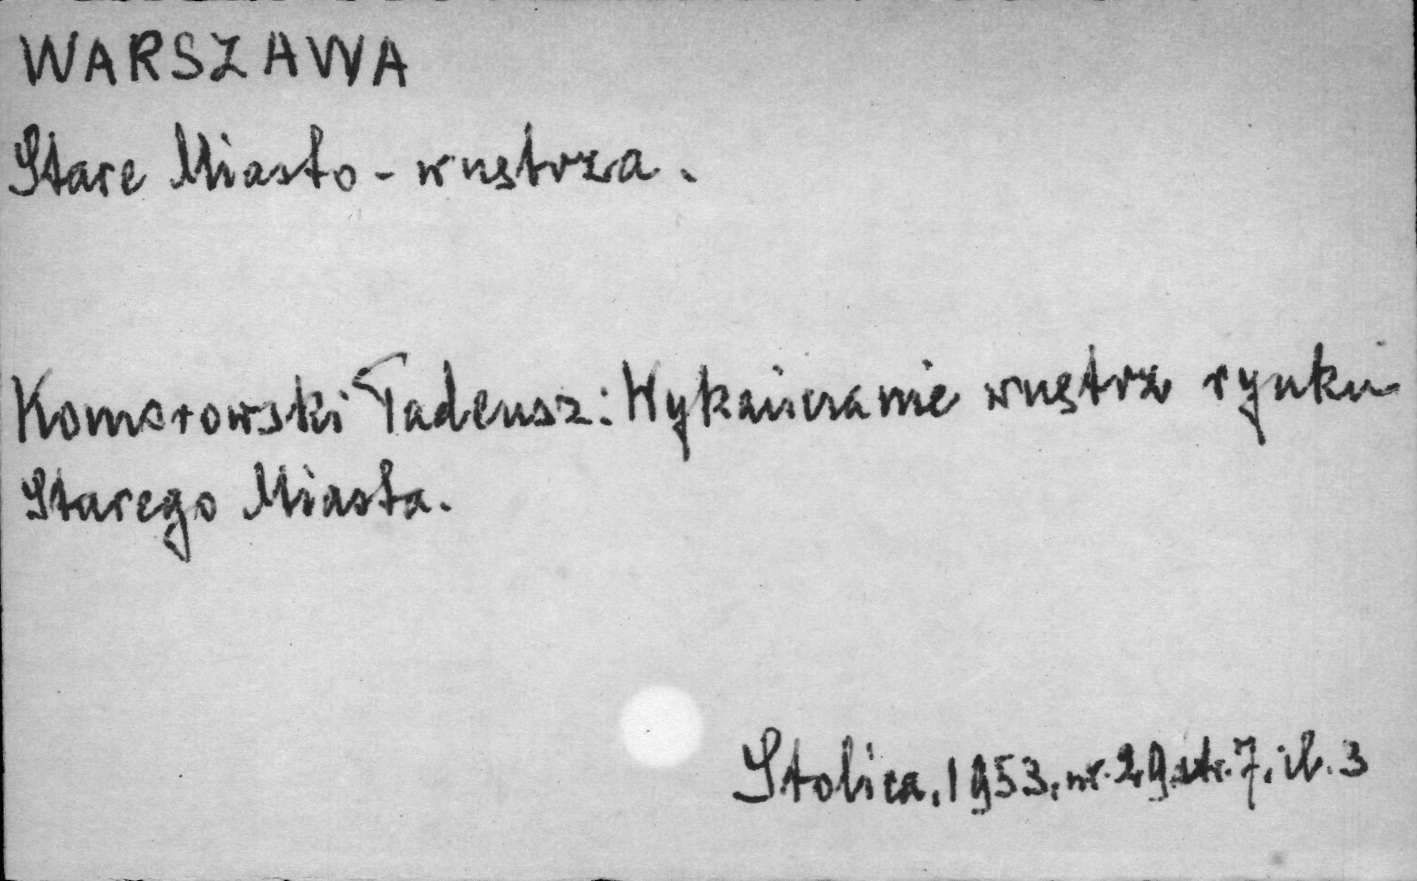 WARSZAWA
Stare Miasto - wnętrza.
Komorowski Tadeusz: Wykańczanie wnętrz rynku
Starego Miasta.
Stolica, 1953, nr. 29 str. 7, il. 3